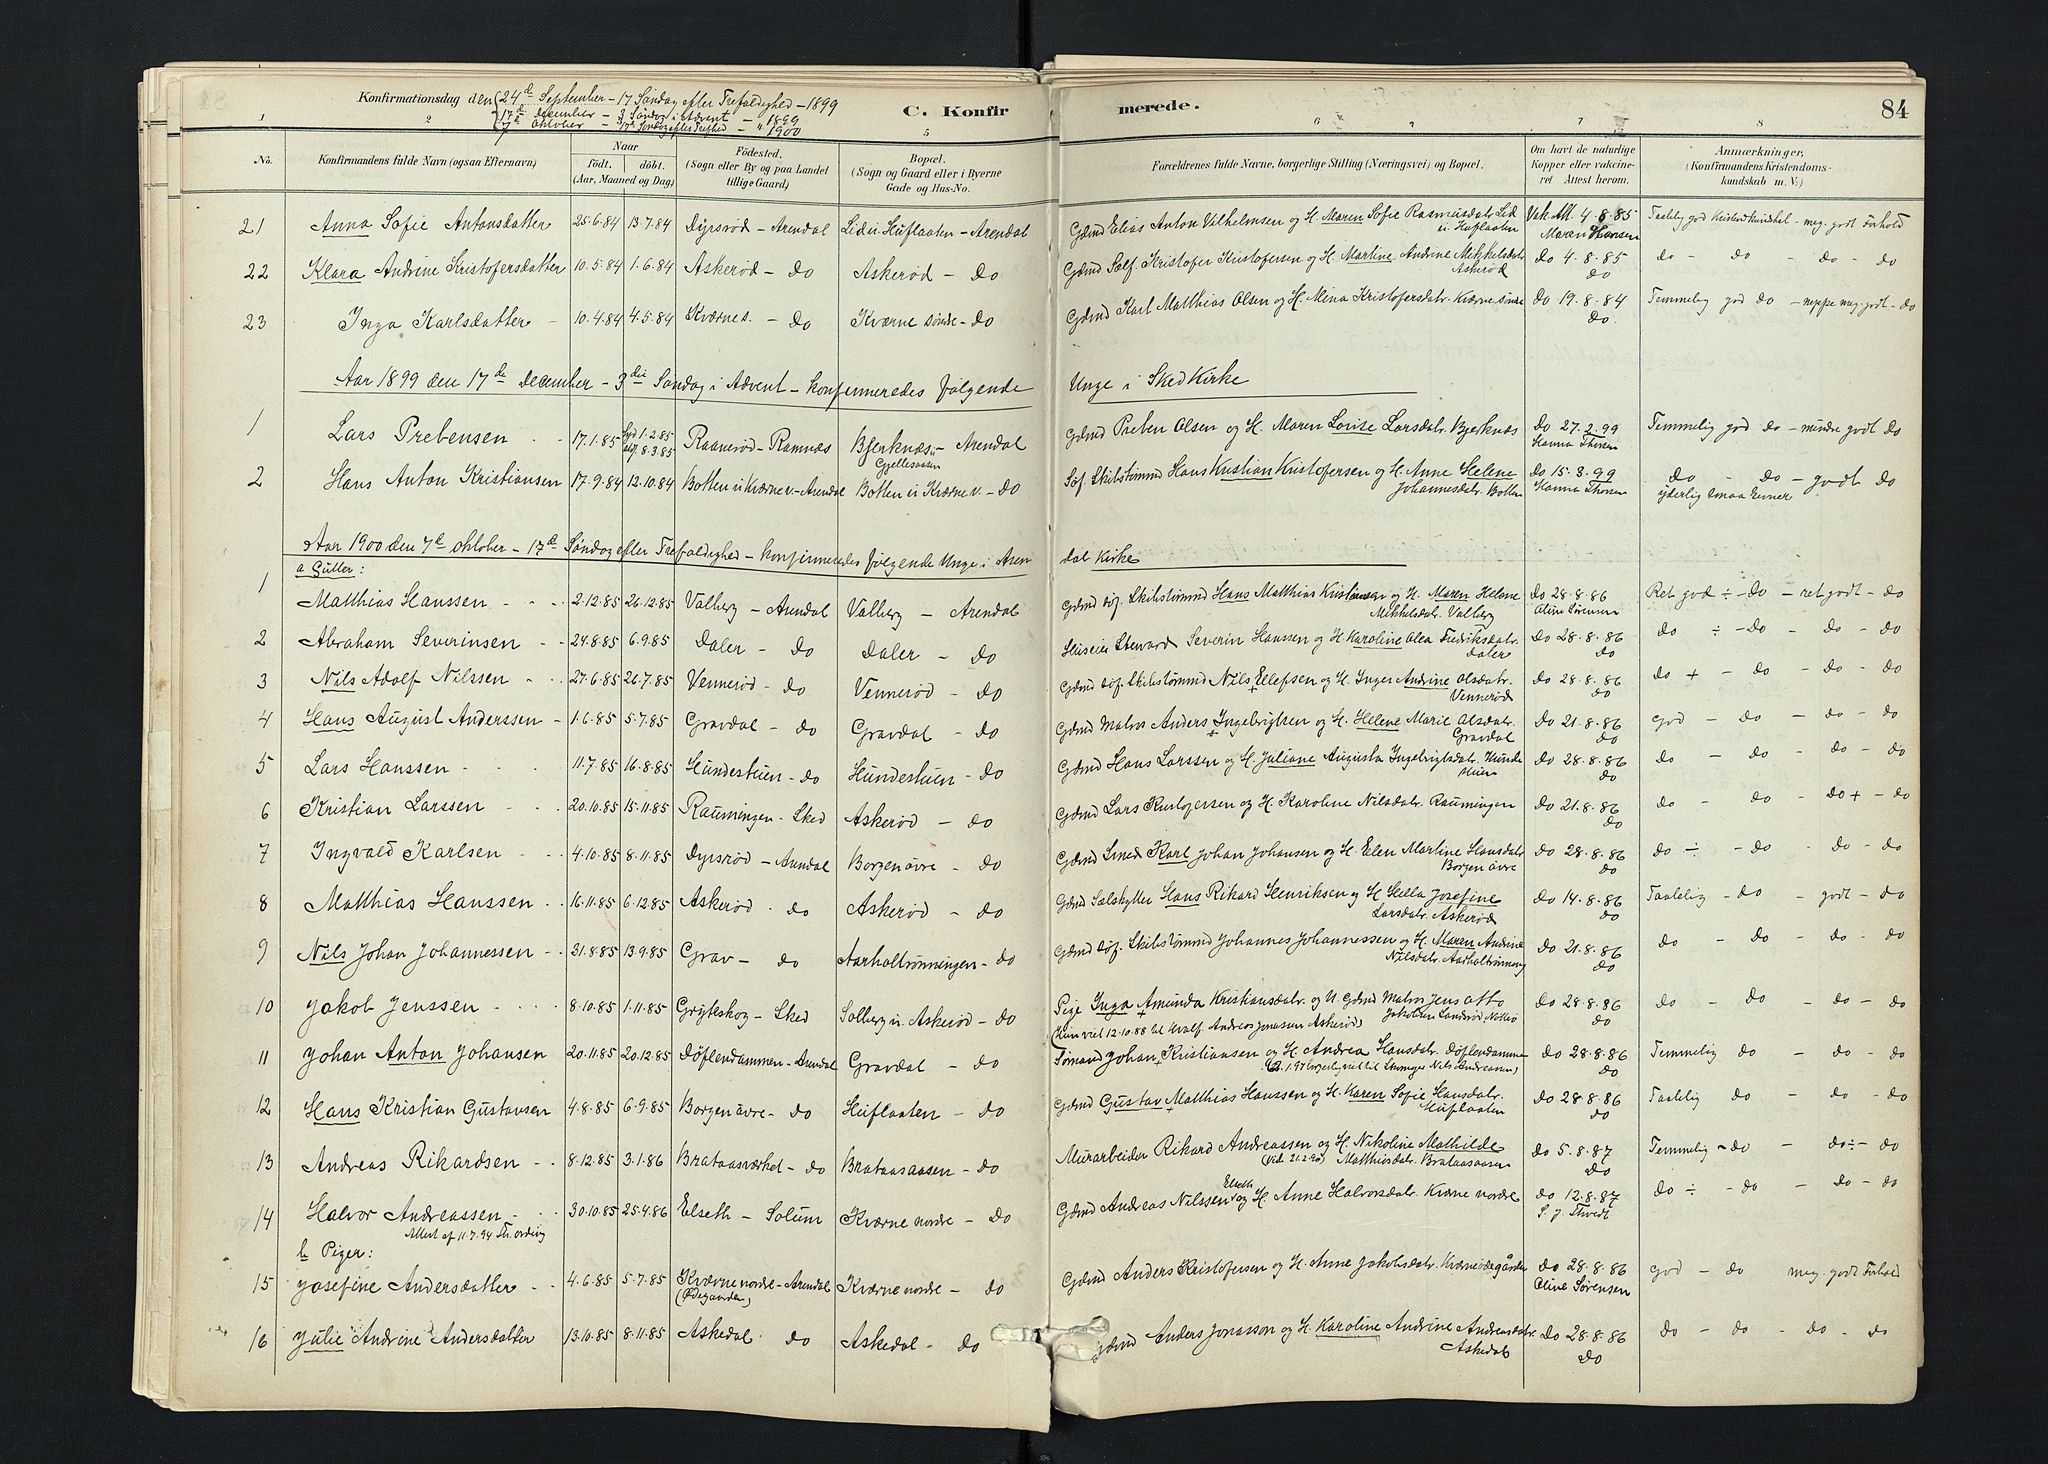 Konfirmationsdag den 24de September - 17 Søndag efter Trefoldighed - 1899
17de December - 3 Søndag i Advent - 1899
7de Oktober - 17de Søndag efter Trefhed - " 1900
C. Konfirmerede.
84
1 2 5 6 7 8
No.
Konfirmandens fulde Navn (ogsaa Efternavn)
Naar
født. døbt.
(Aar, Maaned og Dag)
Fødested.
(Sogn eller By og paa Landet
tillige Gaard)
Bopæl.
(Sogn og Gaard eller i Byerne
Gade og Hus-No.
Forældrenes fulde Navne, borgerlige Stilling (Næringsvei) og Bopæl.
Om havt de naturlige
Kopper eller vakcine-
ret. Attest herom.
Anmærkninger,
(Konfirmandens Kristendoms-
kundskab m. V.)
21 Anna Sofie Antonsdatter 25.6.84 13.7.84 Dyrsrød - Arendal Lid u. Huflaaten - Arendal Gdmd Elias Anton Vilhelmsen og H. Maren Sofie Rasmusdatr. Lid u. Huflaaten Vak. Att. 4.8.85 Maren Hansen Taalelig god Kristd.kundskab - meg. godt Forhold
22 Klara Andrine Kristofersdatter 10.5.84 1.6.84 Askerød - do Askerød - do Gdmd Kristofer Kristofersen og H. Martine Andrine Mikkelsdatr. Askerød do 4.8.85 do do - do - do - do
23 Inga Karlsdatter - 10.4.84 4.5.84 Kværne s. - do Kværne søndre - do Gdmd Karl Matthias Olsen og H. Mina Kristofersdatr. Kværne søndre do 19.8.84 do. Temmelig god do - neppe meg. godt - do
Aar 1899 den 17de December - 3die Søndag i Advent - konfirmeredes følgende Unge i Sked Kirke
1 Lars Prebensen 17.1.85 1.2.85 8.3.85 Raanerød - Ramnæs Bjerknæs u. Gjellesaasen - Arendal Gdmd Preben Olsen og H. Maren Lovise Larsdatr. Bjerknæs do 27.2.99 Hanna Thorsen Temmelig god do - mindre godt do
2 Hans Anton Kristiansen 17.9.84 12.10.84 Botten u. Kværne v. - Arendal Botten u. Kværne v. - do Skibstømmd Hans Kristian Kristofersen og H. Anne Helene Johannesdatr. Botten do 15.3.99 Hanna Thorsen do - do - godt do
yderlig smaa Evner
Aar 1900 den 7de Oktober - 17de Søndag efter Trefoldighed - konfirmeredes følgende Unge i Arendal Kirke
a Gutter:
1 Matthias Hanssen 2.12.85 26.12.85 Valberg - Arendal Valberg - Arendal Gdmd Skibstømmd Hans Matthias Kristiansen og H. Maren Helene Mikkelsdatr. Valberg do 28.8.86 Oline Sørensen Ret god ÷ - do - ret godt - do
2 Abraham Severinsen 24.8.85 6.9.85 Daler - do Daler - do Huseier Steward Severin Hanssen og H. Karoline Olea Fredriksdatr. Daler do 28.8.86 do do ÷ - do - do - do
3 Nils Adolf Nilssen 27.6.85 26.7.85 Vennerød - do Vennerød - do Gdmd Skibstømmd Nils Ellefsen og H. Inger Andrine Olsdatr. Vennerød do 28.8.86 do do + - do - do - do
4 Hans August Anderssen - 1.6.85 5.7.85 Gravdal - do Gravdal - do Gdmd Matros Anders Ingebrigtsen og H. Helene Marie Olsdatr. Gravdal do 21.8.86 do god - do - do - do
5 Lars Hanssen 11.7.85 16.8.85 Hundestuen - do Hundestuen - do Gdmd Hans Larssen og H. Juliane Augusta Ingebrigtsdatr. Hundestuen do 28.8.86 do do - do - do - do
6 Kristian Larssen 20.10.85 15.11.85 Raumingen - Sked Askerød - do Gdmd Lars Kristofersen og H. Karoline Nilsdatr. Raumingen do 21.8.86 do do - do - do + - do
7 Ingvald Karlsen 4.10.85 8.11.85 Dyrsrød - Arendal Borgen øvre - do Gdmd Smed Karl Johan Johansen og H. Elen Martine Hansdatr. Borgen øvre do 28.8.86 do do ÷ - do - do - do
8 Matthias Hanssen 16.11.85 6.12.85 Askerød - do Askerød - do Gdmd Hans Rikard Henriksen og H. Josefine Larsdatr. Askerød do 14.8.86 do Taalelig - do - godt - do
9 Nils Johan Johannessen 31.8.85 13.9.85 Grav - do Aarholtrønningen - do Gdmd Skibstømmd Johannes Johannessen og H. Maren Andrine Nilsdatr. Aarholtrønning do 21.8.86 do do - do - do - do
10 Jakob Jenssen 8.10.85 1.11.85 Gryteskog - Sked Solberg u. Askerød - do Pige Inga Amunda Kristiansdatr. og U. Gdmd Matros Jens Otto Jakobsen do 28.8.86 do do - do - do - do
(Hun viet 12.10.88 til Andreas Jonassen Askerød)
11 Johan Anton Johansen 20.11.85 20.12.85 Døflendammen - Arendal Gravdal - do Sømand Johan Kristiansen og H. Andrea Hansdatr. Døflendammen do 28.8.86 do Temmelig do - do - do
12 Hans Kristian Gustavsen 4.8.85 6.9.85 Borgen øvre - do Huflaaten - do Gdmd Gustav Matthias Hanssen og H. Karen Sofie Hansdatr. Huflaaten do 28.8.86 do Taalelig do - do - do
13 Andreas Rikardsen 8.12.85 3.1.86 Brataasværket - do Brataasaasen - do Murarbeider Rikard Andreassen og H. Nikoline Mathilde Matthiasdatr. Brataasaasen do 5.8.87 do Temmelig - do - do ÷ - do
14 Halvor Andreassen 30.10.85 25.4.86 Elseth - Solum Kværne nordre - do Gdmd Andreas Nilssen Elseth og H. Anne Halvorsdatr. Kværne nordre do 12.8.87 S. J. Thvedt do ÷ - do - do - do
Attest af 11.7.94
b Piger:
15 Josefine Andersdatter 4.6.85 5.7.85 Kværne nordre - Arendal (Ødegaarden) Kværne nordre - do Gdmd Anders Kristofersen og H. Anne Jakobsdatr. Kværneødegården do 28.8.86 Oline Sørensen god - do meg. godt Forhold
16 Julie Andrine Andersdatter 13.10.85 8.11.85 Askedal do Askedal - do Gdmd Anders Jonasson og H. Karoline Andrine Andreasdatr. Askedal do 28.8.86 do do - do - do - do